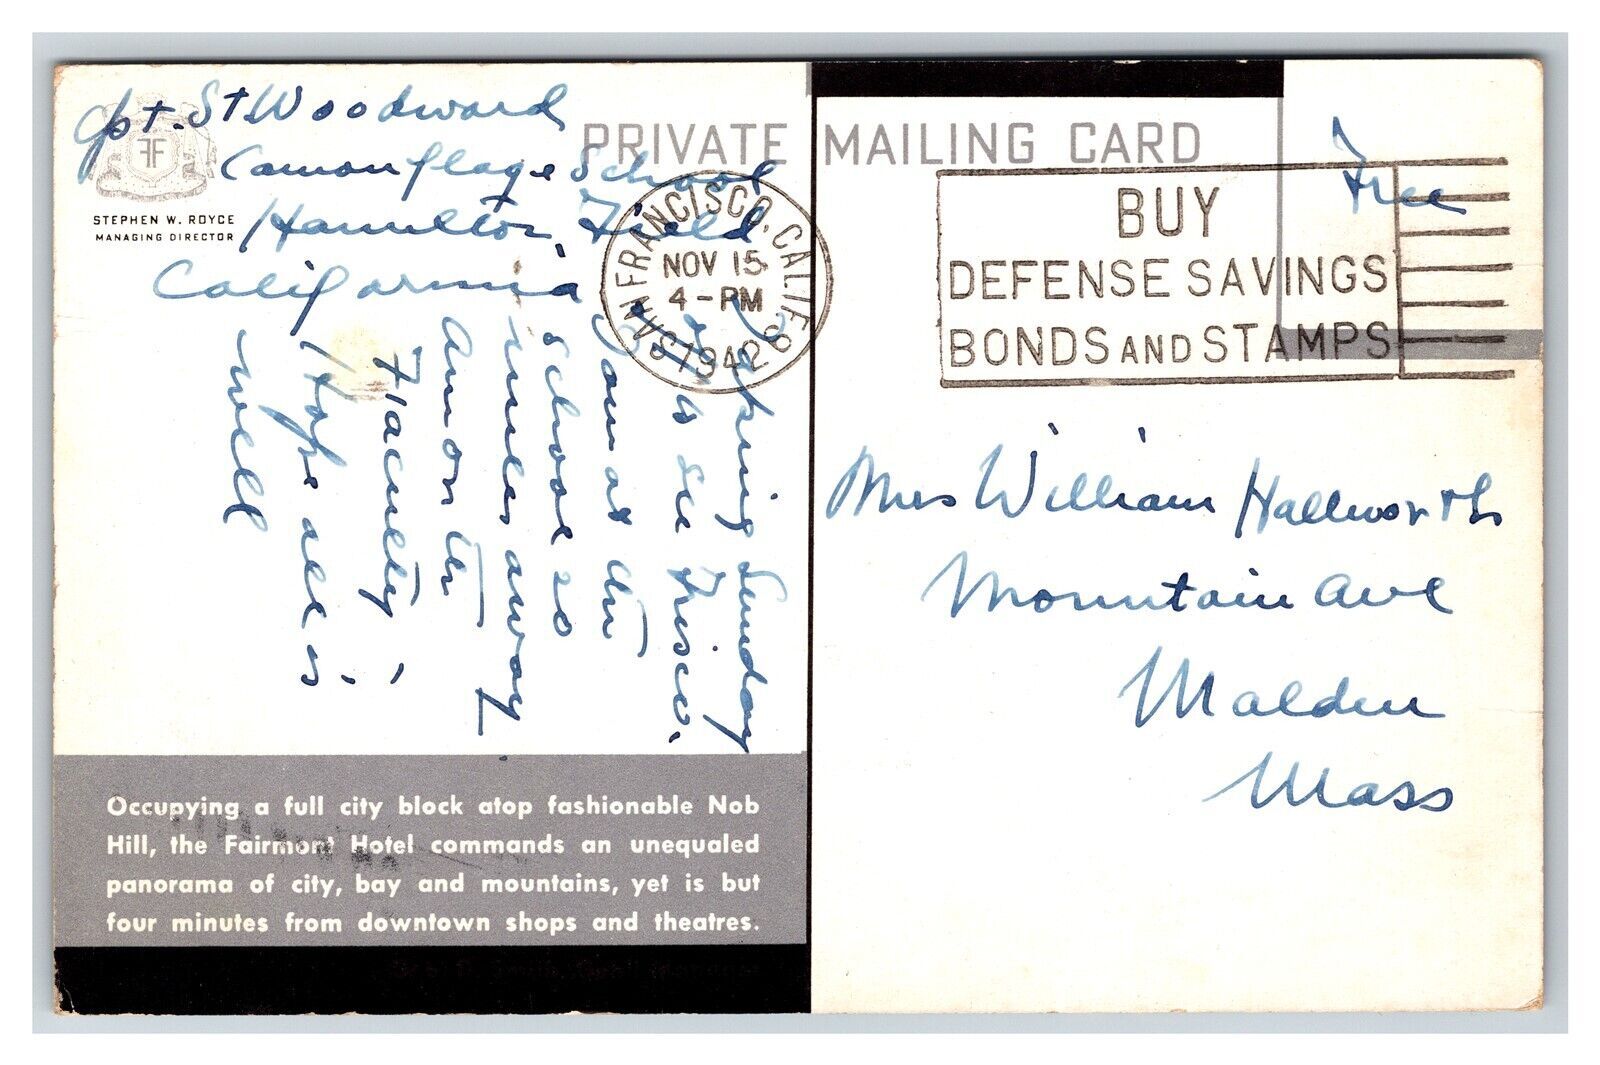 Cpt. St. Woodward
Camouflage School
Hamilton, Field
California
FF
STEPHEN W. ROYCE
MANAGING DIRECTOR
PRIVATE MAILING CARD
Free
SAN FRANCISCO, CALIF.
NOV 15
4-PM
1942
BUY
DEFENSE SAVINGS
BONDS AND STAMPS
Sunday
to see Frisco.
am at the
school 20
miles away
Am on the
Faculty.
Hope all is
well
Mrs William Hallworth
Mountain Ave
Malden
Mass
Occupying a full city block atop fashionable Nob
Hill, the Fairmont Hotel commands an unequaled
panorama of city, bay and mountains, yet is but
four minutes from downtown shops and theatres.